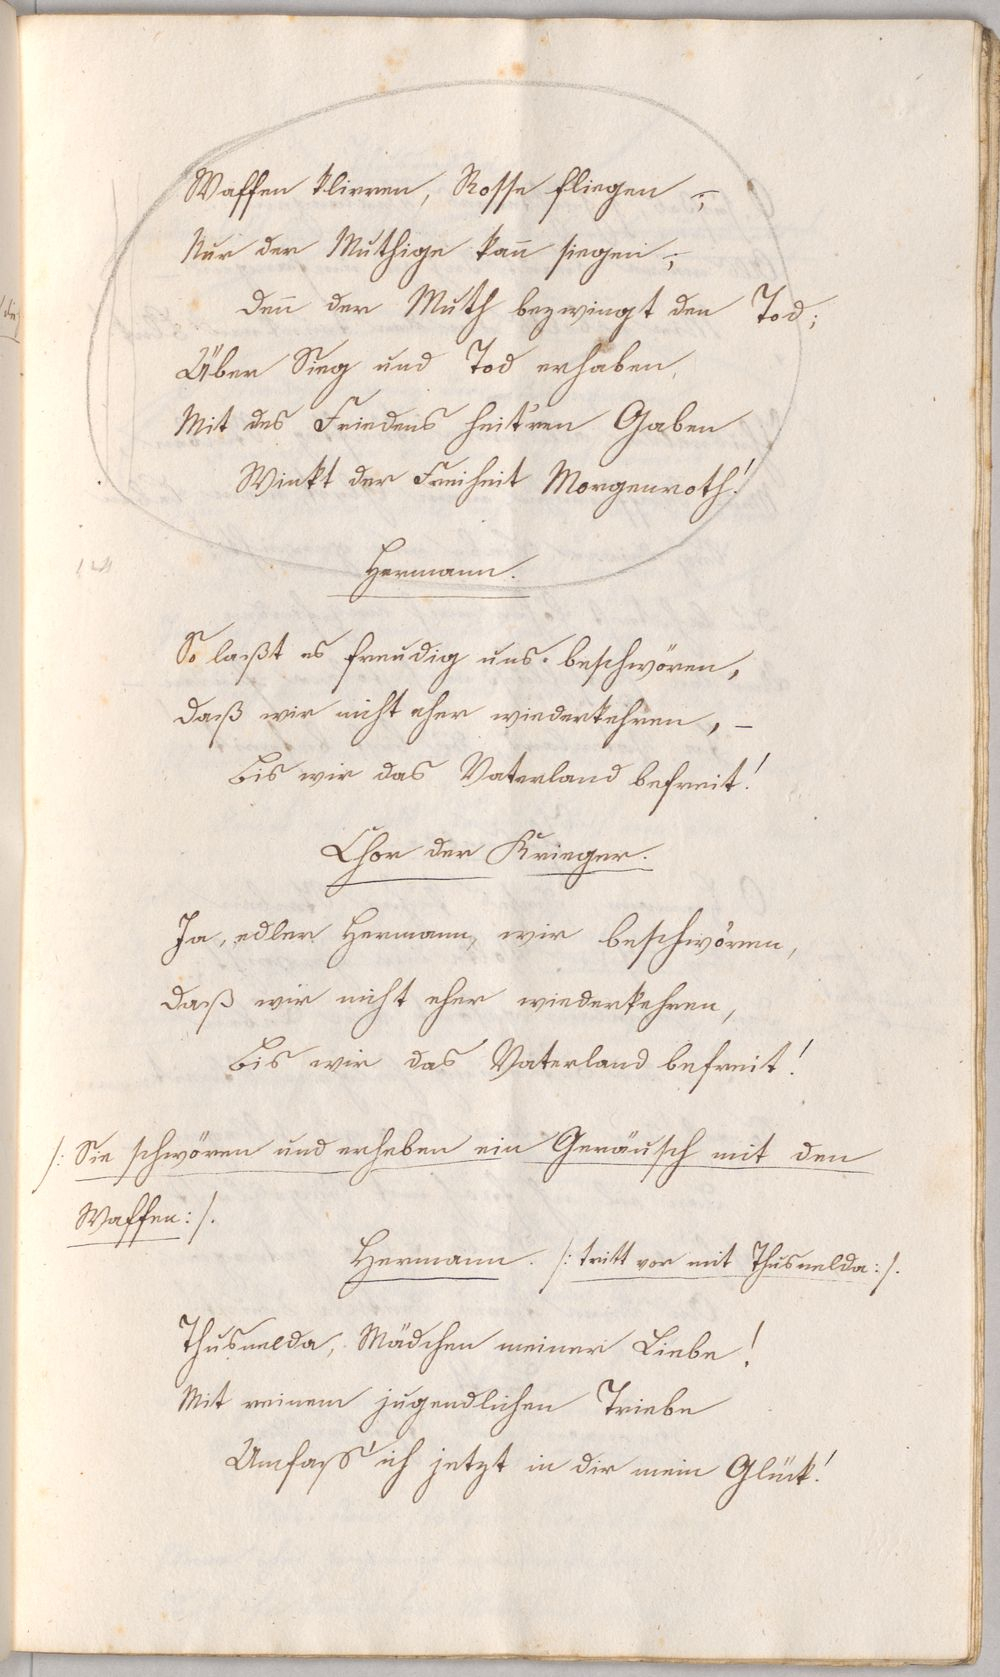 Waffen klirren, Rosse fliegen –;
Nur der Muthige kan̄ siegen –;
Den̄ der Muth bezwingt den Tod;
Über Sieg und Tod erhaben,
Mit des Friedens heit'ren Gaben
Winkt der Freiheit Morgenroth!
Hermann.
So laßt es freudig uns beschwören,
Daß wir nicht eher wiederkehren, –
Bis wir das Vaterland befreit!
Chor der Krieger.
Ja, edler Hermann, wir beschwören,
Daß wir nicht eher wiederkehren,
Bis wir das Vaterland befreit!
/: Sie schwören und erheben ein Geräusch mit den
Waffen :/.
Hermann. /: tritt vor mit Thusnelda :/.
Thusnelda, Mädchen meiner Liebe!
Mit reinem jugendlichen Triebe
Umfass' ich jetzt in dir mein Glück!